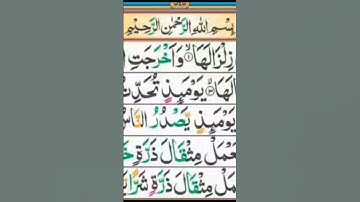 بِسْمِ اللهِ الرَّحْمٰنِ الرَّحِيْمِ
زِلْزَالَهَا ۙ﴿۱﴾ وَاَخْرَجَتِ
لَهَا ۚ﴿۳﴾ يَوْمَىِٕذٍ تُحَدِّثُ
يَوْمَىِٕذٍ يَّصْدُرُ النَّاسُ
عْمَلْ مِثْقَالَ ذَرَّةٍ خَ
مَلْ مِثْقَالَ ذَرَّةٍ شَرًّا